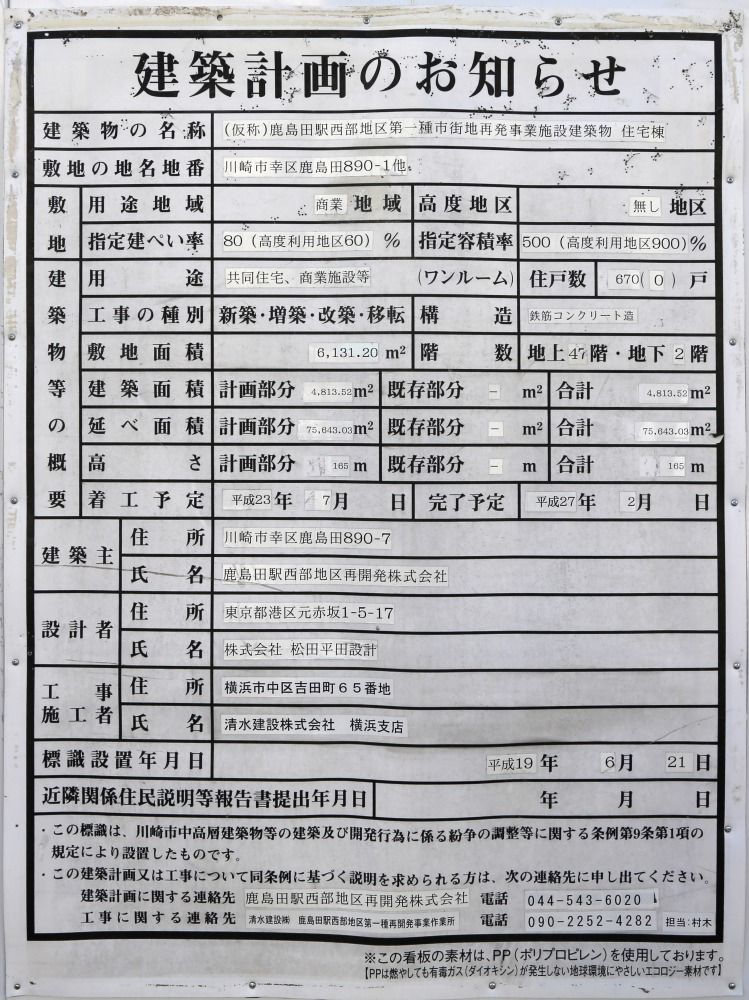 建築計画のお知らせ
建築物の名称 (仮称)鹿島田駅西部地区第一種市街地再発事業施設建築物 住宅棟
敷地の地名地番 川崎市幸区鹿島田890-1他
敷地 用途地域 商業 地域 高度地区 無し 地区
指定建ぺい率 80 (高度利用地区60) % 指定容積率 500 (高度利用地区900)%
建築物等の概要 用途 共同住宅、商業施設等 (ワンルーム) 住戸数 670( 0 ) 戸
工事の種別 新築・増築・改築・移転 構造 鉄筋コンクリート造
敷地面積 6,131.20 m² 階数 地上47階・地下2階
建築面積 計画部分 4,813.52m² 既存部分 - m² 合計 4,813.52m²
延べ面積 計画部分 75,643.03m² 既存部分 - m² 合計 75,643.03m²
高さ 計画部分 165 m 既存部分 - m 合計 165 m
着工予定 平成23年 7月 日 完了予定 平成27年 2月 日
建築主 住所 川崎市幸区鹿島田890-7
氏名 鹿島田駅西部地区再開発株式会社
設計者 住所 東京都港区元赤坂1-5-17
氏名 株式会社 松田平田設計
工事施工者 住所 横浜市中区吉田町65番地
氏名 清水建設株式会社 横浜支店
標識設置年月日 平成19年 6月 21日
近隣関係住民説明等報告書提出年月日 年 月 日
・この標識は、川崎市中高層建築物等の建築及び開発行為に係る紛争の調整等に関する条例第9条第1項の
規定により設置したものです。
・この建築計画又は工事について同条例に基づく説明を求められる方は、次の連絡先に申し出てください。
建築計画に関する連絡先 鹿島田駅西部地区再開発株式会社 電話 044-543-6020
工事に関する連絡先 清水建設㈱ 鹿島田駅西部地区第一種再開発事業作業所 電話 090-2252-4282 担当:村木
※この看板の素材は、PP(ポリプロピレン)を使用しております。
【PPは燃やしても有毒ガス(ダイオキシン)が発生しない地球環境にやさしいエコロジー素材です】